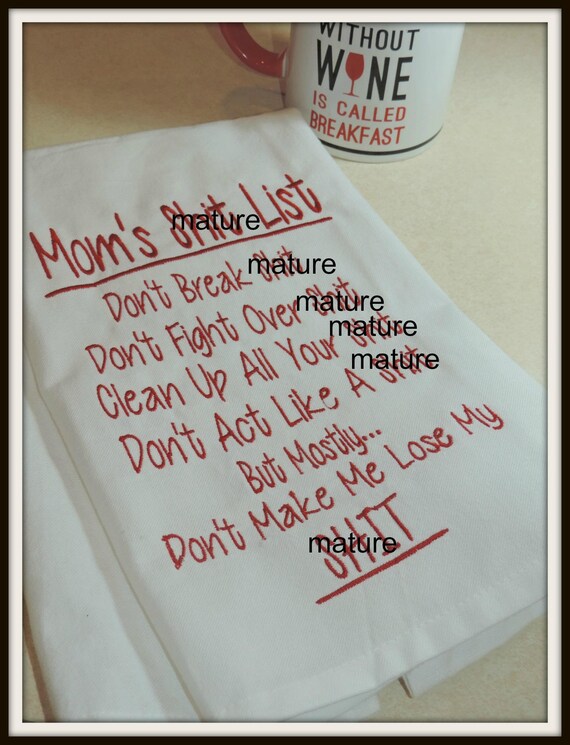 WITHOUT
WINE
IS CALLED
BREAKFAST
Mom's Shit List
mature
Don't Break Shit
mature
Don't Fight Over Shit
mature
Clean Up All Your Shit
mature
Don't Act Like A Shit
mature
But Mostly...
Don't Make Me Lose My
SHIT
mature